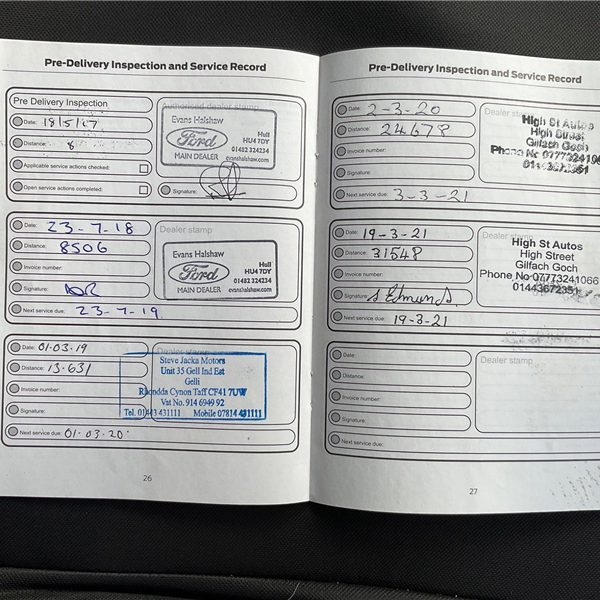 Pre-Delivery Inspection and Service Record
Pre Delivery Inspection
Date: 18/5/17
Distance: 8
Applicable service actions checked:
Open service actions completed:
Authorised dealer stamp
Evans Halshaw
Ford
MAIN DEALER
Hull
HU4 7DY
01482 324234
evanshalshaw.com
Signature:
Date: 23-7-18
Distance: 8506
Invoice number:
Signature:
Next service due: 23-7-19
Dealer stamp
Evans Halshaw
Ford
MAIN DEALER
Hull
HU4 7DY
01482 324234
evanshalshaw.com
Date: 01-03-19
Distance: 13-631
Invoice number:
Signature:
Next service due: 01-03-20
Dealer stamp
Steve Jacka Motors
Unit 35 Gell Ind Est
Gelli
Rhondda Cynon Taff CF41 7UW
Vat No. 914 6949 92
Tel. 01443 431111 Mobile 07814 431111
26
Pre-Delivery Inspection and Service Record
Date: 2-3-20
Distance: 24678
Invoice number:
Signature:
Next service due: 3-3-21
Dealer stamp
High St Autos
High Street
Gilfach Goch
Phone No 07773241066
01443672351
Date: 19-3-21
Distance: 31548
Invoice number:
Signature: S Edmunds.
Next service due: 19-3-21
Dealer stamp
High St Autos
High Street
Gilfach Goch
Phone No 07773241066
01443672351
Date:
Distance:
Invoice number:
Signature:
Next service due:
Dealer stamp
27